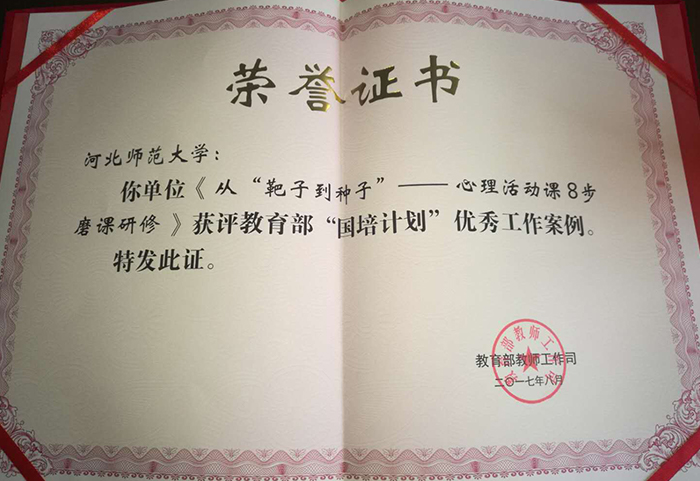 荣誉证书
河北师范大学：
你单位《从“靶子到种子”——心理活动课8步
磨课研修》获评教育部“国培计划”优秀工作案例。
特发此证。
教育部教师工作司
二〇一七年八月